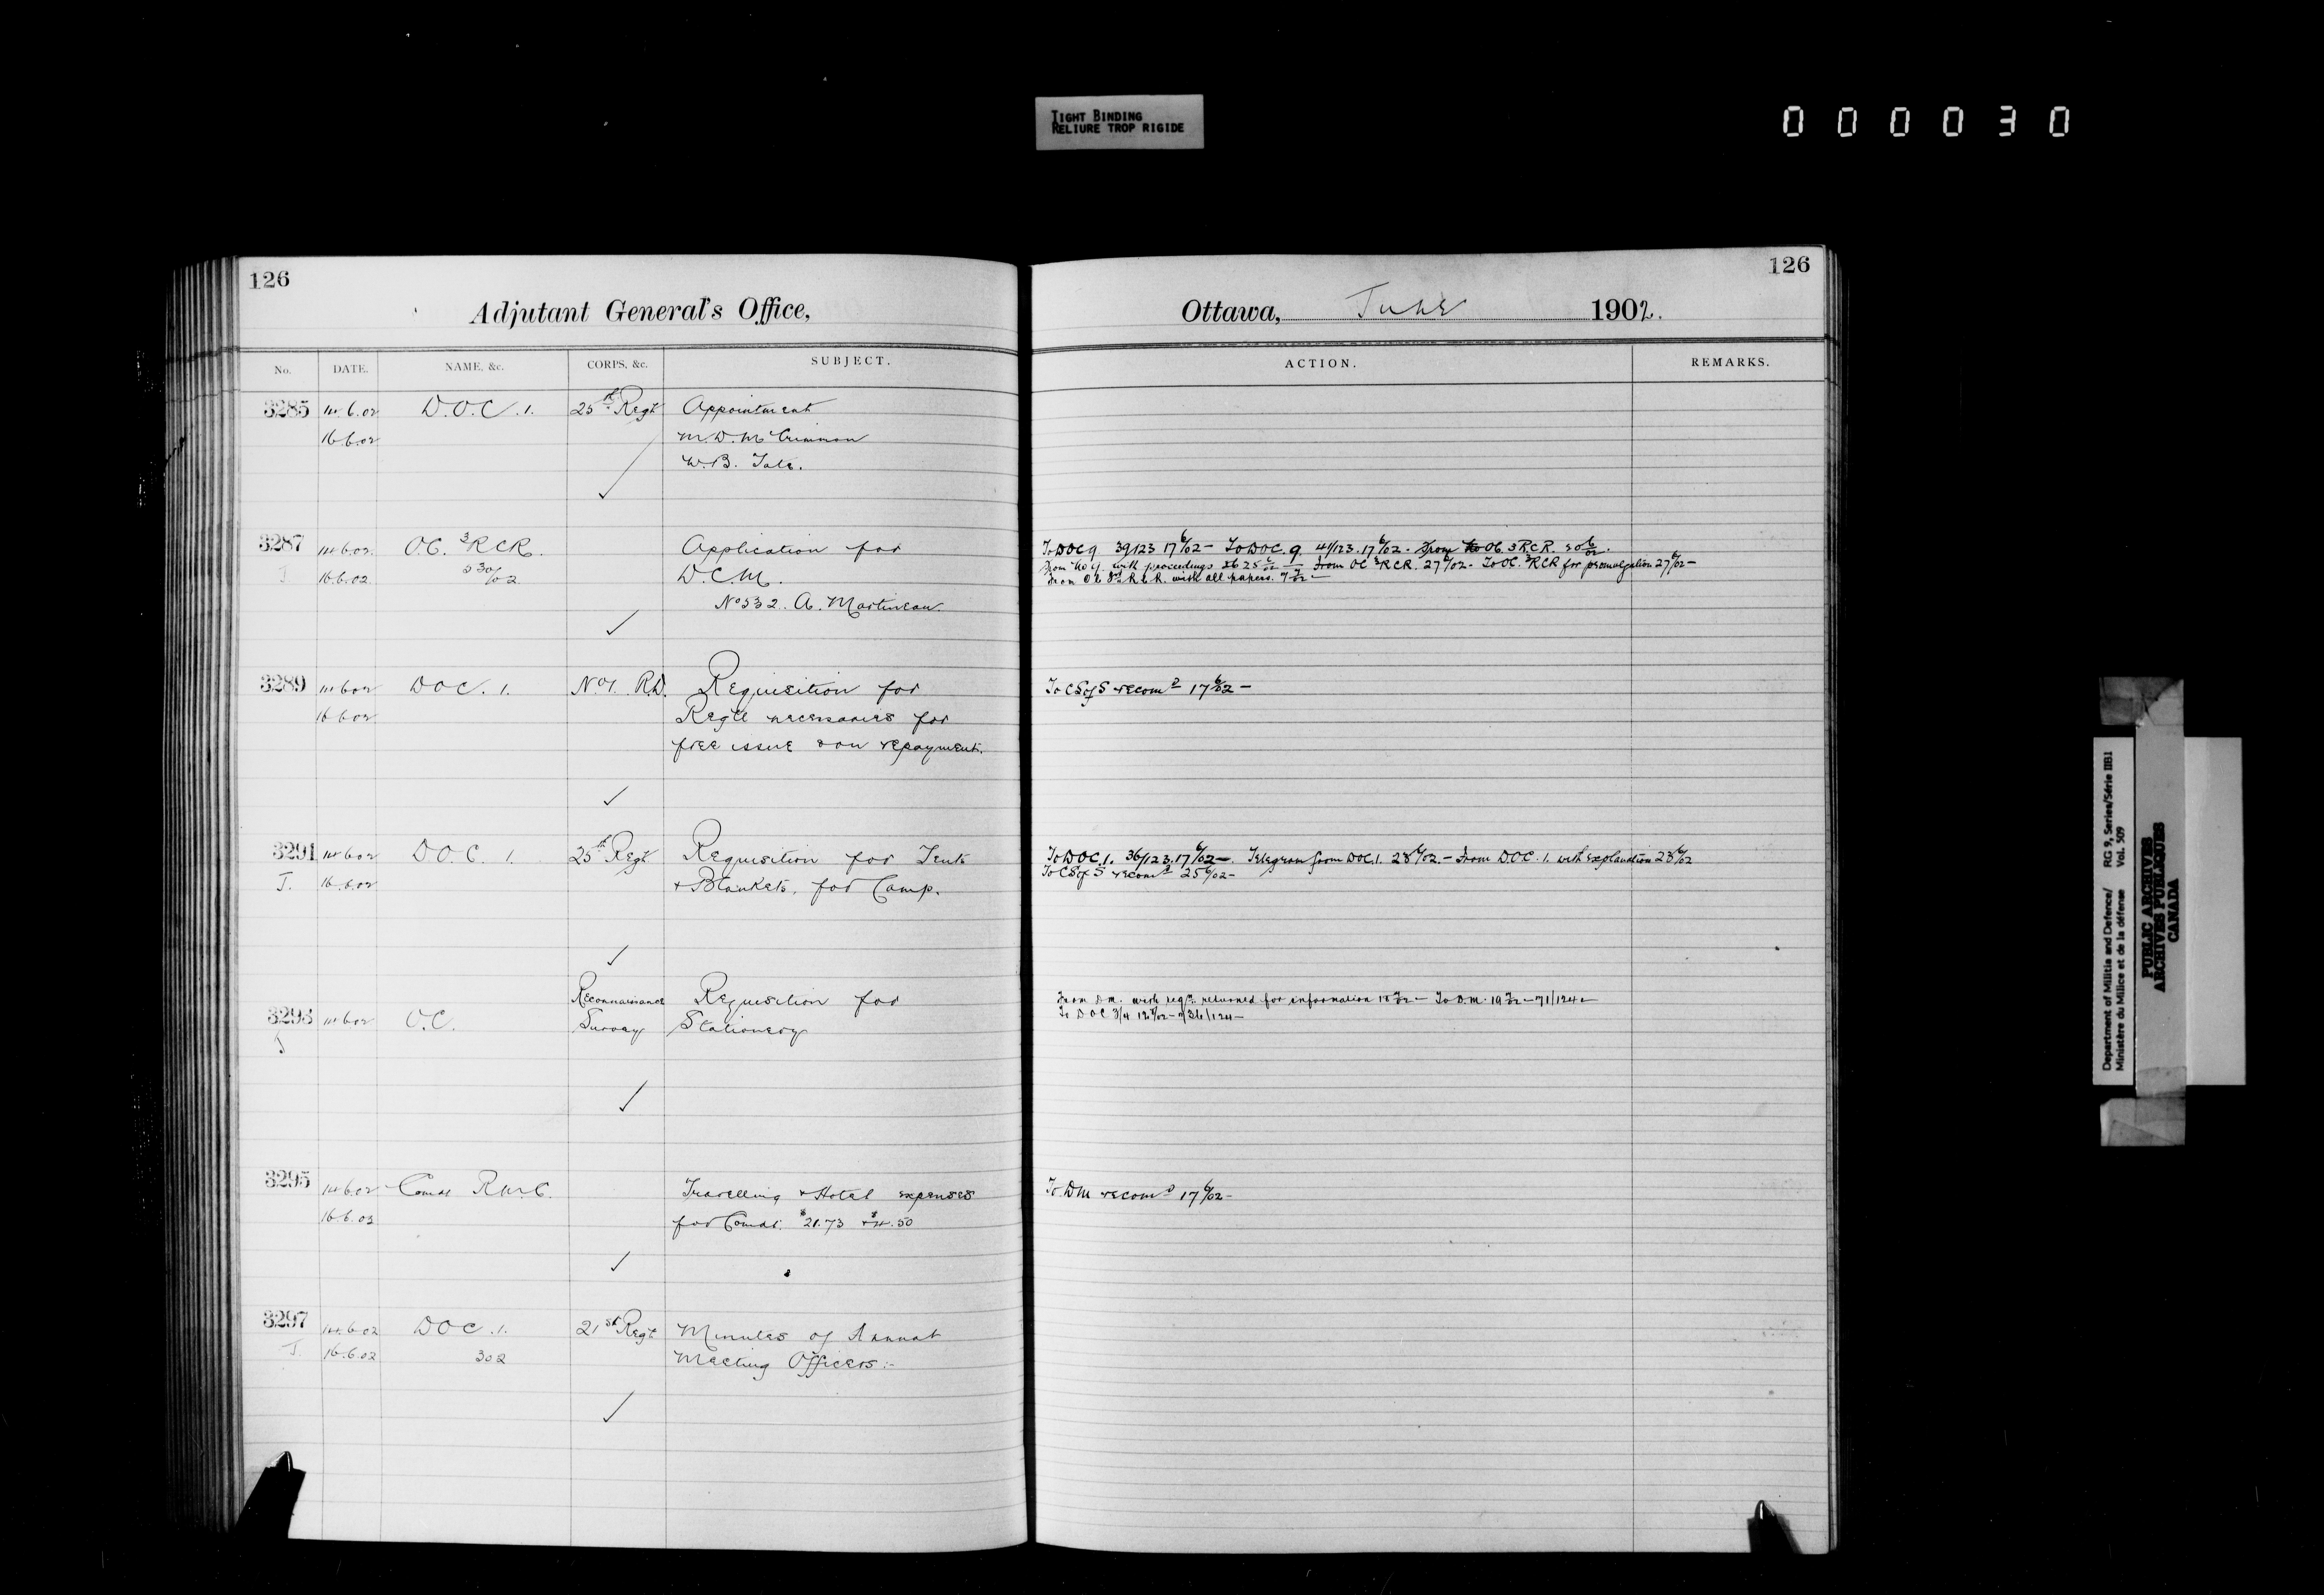 TIGHT BINDING
RELIURE TROP RIGIDE
000030
126
Adjutant General's Office,
No. DATE. NAME, &c. CORPS, &c. SUBJECT.
3285 14.6.02 D.O.C. 1. 25th Regt Appointment
16.6.02 M.D. McCrimmon
W.B. Tate.
3287 14.6.02 O.C. 3RCR. Application for
J 16.6.02 D.C.M.
No 532. A. Martineau.
3289 14.6.02 DOC. 1. No 1. R.D. Requisition for
16.6.02 Regtl necessaries for
free issue & on repayment.
3291 14.6.02 D.O.C. 1. 25th Regt Requisition for Tents
J. 16.6.02 & Blankets, for Camp.
Reconnaissance Requisition for
3293 14.6.02 O.C. Survey Stationery
J
3295 14.6.02 Comdt R.M.C. Travelling & Hotel expenses
16.6.02 for Comdt. $21.73 & $4.50
3297 14.6.02 DOC. 1. 21st Regt Minutes of Annual
J. 16.6.02 302 Meeting Officers:-
126
Ottawa, June 1902.
ACTION. REMARKS.
To DOC 9 39/123 17/6/02 - To DOC. 9. 41/123. 17/6/02. From OC. 3RCR. 20/6/02.
with proceedings 25/6/02 From OC 3RCR. 27/6/02. To OC. 3RCR for promulgation 27/6/02 -
From O.C. 3rd R.C.R. with all papers.
To CSofS recomd 17/6/02 -
To DOC. 1. 36/123. 17/6/02 -. Telegram from DOC. 1. 28/6/02. - From D.O.C. 1. with explanation 23/6/02
To CSofS recomd 25/6/02 -
From D.M. with reqn. returned for information - To DM. - 71/124 -
To DOC 3/4 - 36/124 -
To DM recomd 17/6/02 -
Department of Militia and Defence/ RG 9, Series/Série IIB1
Ministère du Milice et de la défense Vol. 509
PUBLIC ARCHIVES
ARCHIVES PUBLIQUES
CANADA